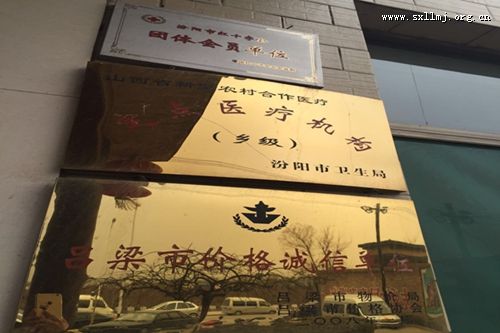 www.sxllmj.org.cn
汾阳市红十字会
团体会员单位
山西省新型农村合作医疗
定点医疗机构
（乡级）
汾阳市卫生局
吕梁市价格诚信单位
吕梁市物价局
吕梁市价格协会
二〇〇八年